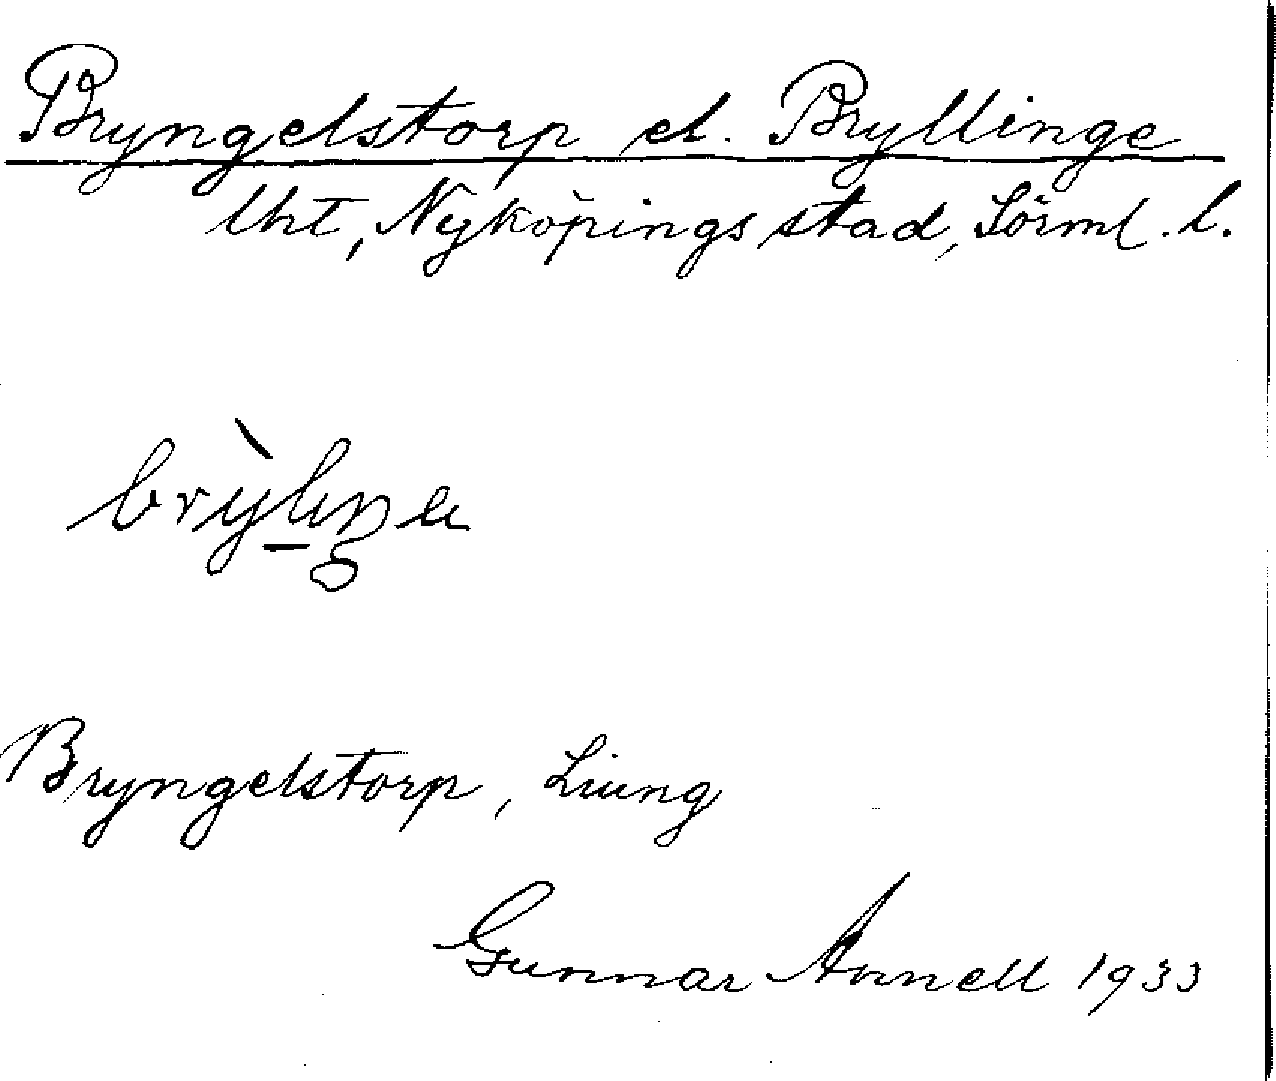 Bryngelstorp el. Bryllinge
lht, Nyköpings stad, Sörml. l.
Bryngelstorp, Liung
Gunnar Annell 1933